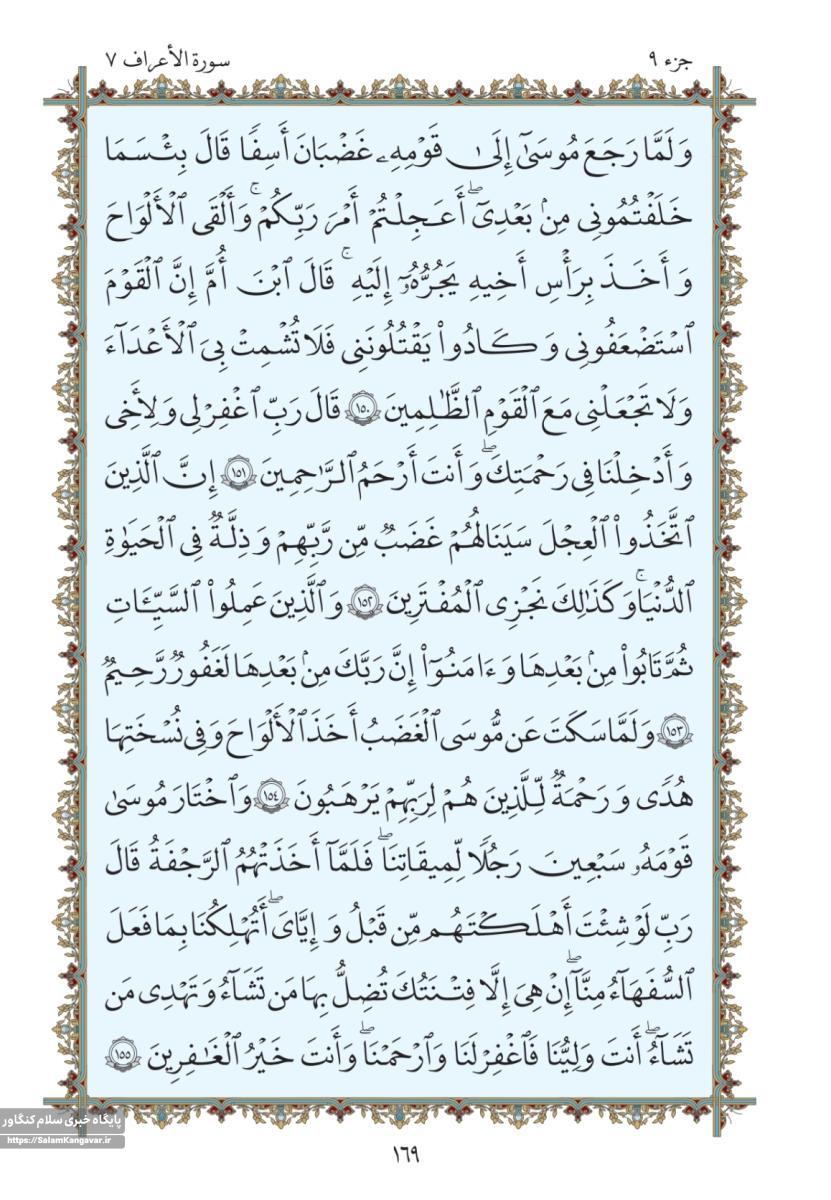 جزء ۹
سورة الأعراف ۷
وَلَمَّا رَجَعَ مُوسَىٰٓ إِلَىٰ قَوْمِهِۦ غَضْبَٰنَ أَسِفًا قَالَ بِئْسَمَا
خَلَفْتُمُونِى مِنۢ بَعْدِىٓ ۖ أَعَجِلْتُمْ أَمْرَ رَبِّكُمْ ۖ وَأَلْقَى ٱلْأَلْوَاحَ
وَأَخَذَ بِرَأْسِ أَخِيهِ يَجُرُّهُۥٓ إِلَيْهِ ۚ قَالَ ٱبْنَ أُمَّ إِنَّ ٱلْقَوْمَ
ٱسْتَضْعَفُونِى وَكَادُوا۟ يَقْتُلُونَنِى فَلَا تُشْمِتْ بِىَ ٱلْأَعْدَآءَ
وَلَا تَجْعَلْنِى مَعَ ٱلْقَوْمِ ٱلظَّٰلِمِينَ ١٥٠ قَالَ رَبِّ ٱغْفِرْ لِى وَلِأَخِى
وَأَدْخِلْنَا فِى رَحْمَتِكَ ۖ وَأَنتَ أَرْحَمُ ٱلرَّٰحِمِينَ ١٥١ إِنَّ ٱلَّذِينَ
ٱتَّخَذُوا۟ ٱلْعِجْلَ سَيَنَالُهُمْ غَضَبٌ مِّن رَّبِّهِمْ وَذِلَّةٌ فِى ٱلْحَيَوٰةِ
ٱلدُّنْيَا ۚ وَكَذَٰلِكَ نَجْزِى ٱلْمُفْتَرِينَ ١٥٢ وَٱلَّذِينَ عَمِلُوا۟ ٱلسَّيِّـَٔاتِ
ثُمَّ تَابُوا۟ مِنۢ بَعْدِهَا وَءَامَنُوٓا۟ إِنَّ رَبَّكَ مِنۢ بَعْدِهَا لَغَفُورٌ رَّحِيمٌ
١٥٣ وَلَمَّا سَكَتَ عَن مُّوسَى ٱلْغَضَبُ أَخَذَ ٱلْأَلْوَاحَ وَفِى نُسْخَتِهَا
هُدًى وَرَحْمَةٌ لِّلَّذِينَ هُمْ لِرَبِّهِمْ يَرْهَبُونَ ١٥٤ وَٱخْتَارَ مُوسَىٰ
قَوْمَهُۥ سَبْعِينَ رَجُلًا لِّمِيقَٰتِنَا ۖ فَلَمَّآ أَخَذَتْهُمُ ٱلرَّجْفَةُ قَالَ
رَبِّ لَوْ شِئْتَ أَهْلَكْتَهُم مِّن قَبْلُ وَإِيَّٰىَ ۖ أَتُهْلِكُنَا بِمَا فَعَلَ
ٱلسُّفَهَآءُ مِنَّآ ۖ إِنْ هِىَ إِلَّا فِتْنَتُكَ تُضِلُّ بِهَا مَن تَشَآءُ وَتَهْدِى مَن
تَشَآءُ ۖ أَنتَ وَلِيُّنَا فَٱغْفِرْ لَنَا وَٱرْحَمْنَا ۖ وَأَنتَ خَيْرُ ٱلْغَٰفِرِينَ ١٥٥
پایگاه خبری سلام کنگاور
https://SalamKangavar.ir
١٦٩